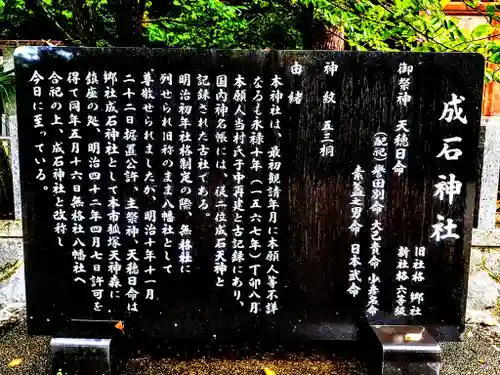 成石神社
旧社格 郷社
新社格 六等級
御祭神 天穂日命
(配祀) 誉田別命 大己貴命 少彦名命
素盞之男命 日本武命
神紋 五三桐
由緒
本神社は、最初観請年月に本願人等不詳
なるも永禄十年(一五六七年)丁卯八月
本願人当村氏子中再建と古記録にあり、
国内神名帳には、従二位成石天神と
記録された古社である。
明治初年社格制定の際、無格社に
列せられ旧称のまま八幡社として
尊敬せられましたが、明治十年十一月
二十二日据置公許、主祭神、天穂日命
郷社成石神社として本市狐塚天神森に
鎮座の処、明治四十二年四月七日許可を
得て同年五月十六日無格社八幡社へ
合祀の上、成石神社と改称し
今日に至っている。